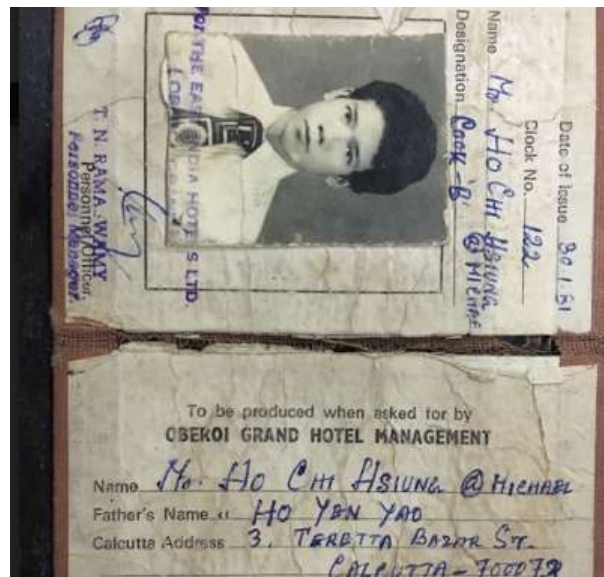 Date of Issue 30.1.81
Clock No. 122
Name Mr. HO CHI HSIUNG @ MICHAE
Designation COOK-'B'
FOR THE EAST INDIA HOTELS LTD.
T. N. RAMA SWAMY
Personnel Officer,
Personnel Manager.
To be produced when asked for by
OBEROI GRAND HOTEL MANAGEMENT
Name Mr. HO CHI HSIUNG @ MICHAEL
Father's Name HO YEN YAO
Calcutta Address 3, TERETTA BAZAR ST.
CALCUTTA - 700073